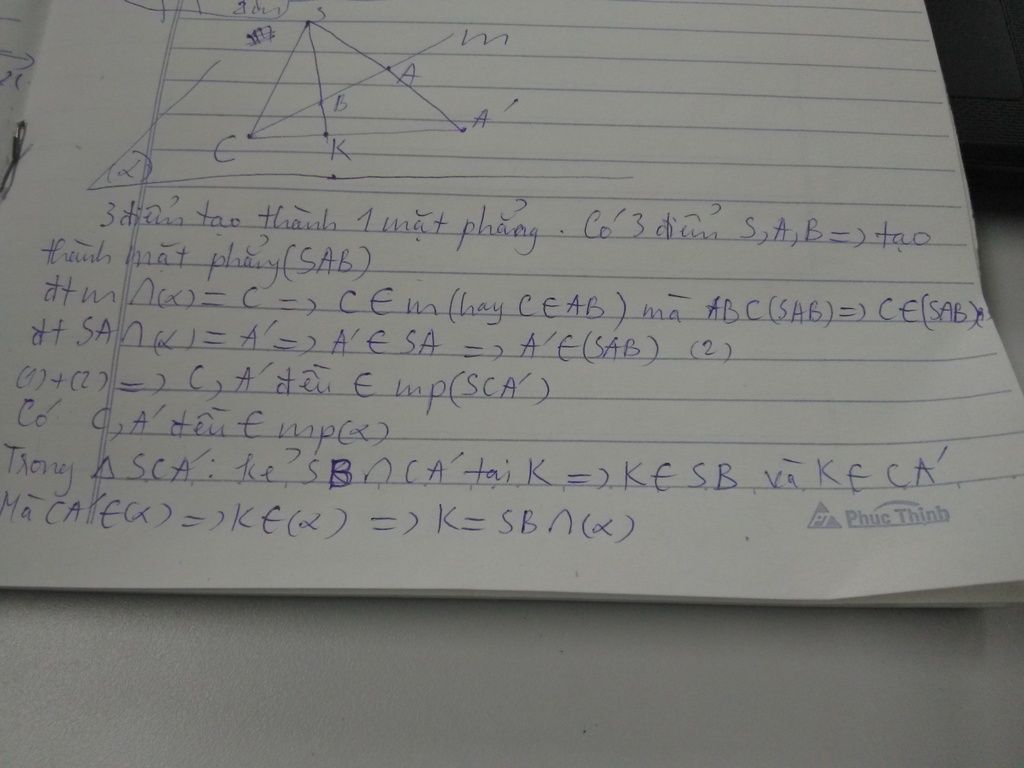 S
m
A
B
A'
C
K
(α)
3 điểm tạo thành 1 mặt phẳng. Có 3 điểm S, A, B => tạo
thành mặt phẳng (SAB)
đt m ∩ (α) = C => C ∈ m (hay C ∈ AB) mà AB ⊂ (SAB) => C ∈ (SAB)
đt SA ∩ (α) = A' => A' ∈ SA => A' ∈ (SAB) (2)
(1) + (2) => C, A' đều ∈ mp(SCA')
Có C, A' đều ∈ mp(α)
Trong Δ SCA': kẻ SB ∩ CA' tại K => K ∈ SB và K ∈ CA'
Mà CA' ∈ (α) => K ∈ (α) => K = SB ∩ (α)
Phuc Thinh